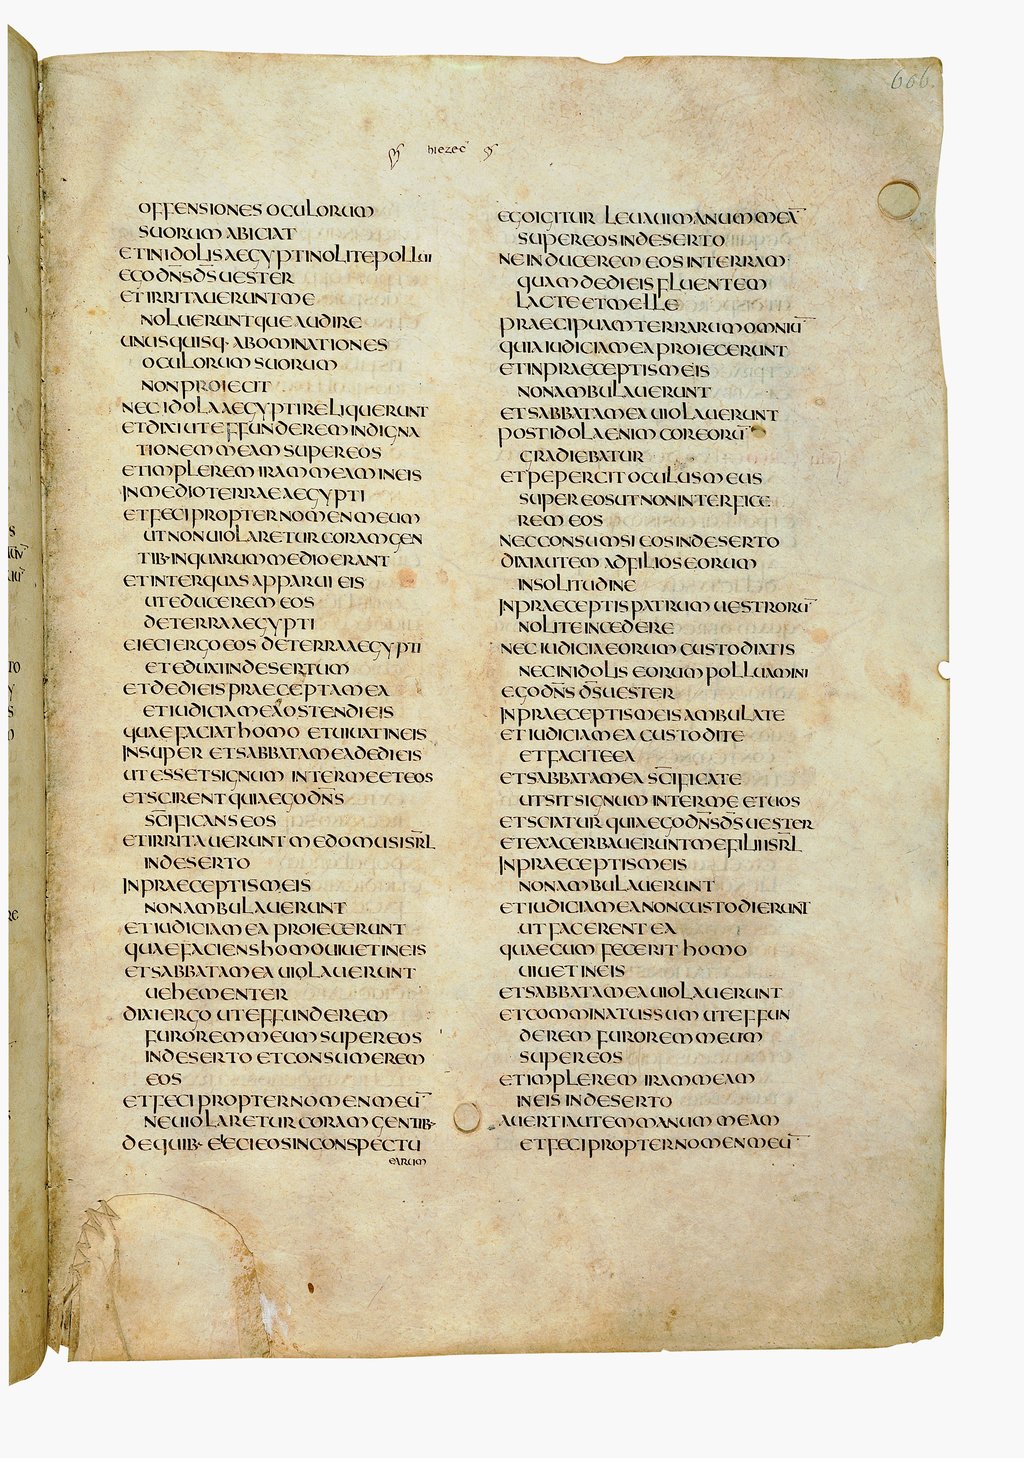 606
hiezec
OFFENSIONES OCULORUM
SUORUM ABICIAT
ET IN IDOLIS AEGYPTI NOLITE POLLUI
EGO DNS DS UESTER
ET IRRITAUERUNT ME
NOLUERUNTQUE AUDIRE
UNUSQUISQ· ABOMINATIONES
OCULORUM SUORUM
NON PROIECIT
NEC IDOLA AEGYPTI RELIQUERUNT
ET DIXI UT EFFUNDEREM INDIGNA
TIONEM MEAM SUPER EOS
ET IMPLEREM IRAM MEAM IN EIS
IN MEDIO TERRAE AEGYPTI
ET FECI PROPTER NOMEN MEUM
UT NON UIOLARETUR CORAM GEN
TIB· IN QUARUM MEDIO ERANT
ET INTER QUAS APPARUI EIS
UT EDUCEREM EOS
DE TERRA AEGYPTI
EIECI ERGO EOS DE TERRA AEGYPTI
ET EDUXI IN DESERTUM
ET DEDI EIS PRAECEPTA MEA
ET IUDICIA MEA OSTENDI EIS
QUAE FACIAT HOMO ET UIUAT IN EIS
INSUPER ET SABBATA MEA DEDI EIS
UT ESSET SIGNUM INTER ME ET EOS
ET SCIRENT QUIA EGO DNS
SCIFICANS EOS
ET IRRITAUERUNT ME DOMUS ISRL
IN DESERTO
IN PRAECEPTIS MEIS
NON AMBULAUERUNT
ET IUDICIA MEA PROIECERUNT
QUAE FACIENS HOMO UIUET IN EIS
ET SABBATA MEA UIOLAUERUNT
UEHEMENTER
DIXI ERGO UT EFFUNDEREM
FUROREM MEUM SUPER EOS
IN DESERTO ET CONSUMEREM
EOS
ET FECI PROPTER NOMEN MEŪ
NE UIOLARETUR CORAM GENTIB·
DE QUIB· EIECI EOS IN CONSPECTU
EARUM
EGO IGITUR LEUAUI MANUM MEĀ
SUPER EOS IN DESERTO
NE INDUCEREM EOS IN TERRAM
QUAM DEDI EIS FLUENTEM
LACTE ET MELLE
PRAECIPUAM TERRARUM OMNIŪ
QUIA IUDICIA MEA PROIECERUNT
ET IN PRAECEPTIS MEIS
NON AMBULAUERUNT
ET SABBATA MEA UIOLAUERUNT
POST IDOLA ENIM COR EORŪ
GRADIEBATUR
ET PEPERCIT OCULUS MEUS
SUPER EOS UT NON INTERFICE
REM EOS
NEC CONSUMSI EOS IN DESERTO
DIXI AUTEM AD FILIOS EORUM
IN SOLITUDINE
IN PRAECEPTIS PATRUM UESTRORŪ
NOLITE INCEDERE
NEC IUDICIA EORUM CUSTODIATIS
NEC IN IDOLIS EORUM POLLUAMINI
EGO DNS DS UESTER
IN PRAECEPTIS MEIS AMBULATE
ET IUDICIA MEA CUSTODITE
ET FACITE EA
ET SABBATA MEA SCIFICATE
UT SIT SIGNUM INTER ME ET UOS
ET SCIATUR QUIA EGO DNS DS UESTER
ET EXACERBAUERUNT ME FILII ISRL
IN PRAECEPTIS MEIS
NON AMBULAUERUNT
ET IUDICIA MEA NON CUSTODIERUNT
UT FACERENT EA
QUAE CUM FECERIT HOMO
UIUET IN EIS
ET SABBATA MEA UIOLAUERUNT
ET COMMINATUS SUM UT EFFUN
DEREM FUROREM MEUM
SUPER EOS
ET IMPLEREM IRAM MEAM
IN EIS IN DESERTO
AUERTI AUTEM MANUM MEAM
ET FECI PROPTER NOMEN MEŪ